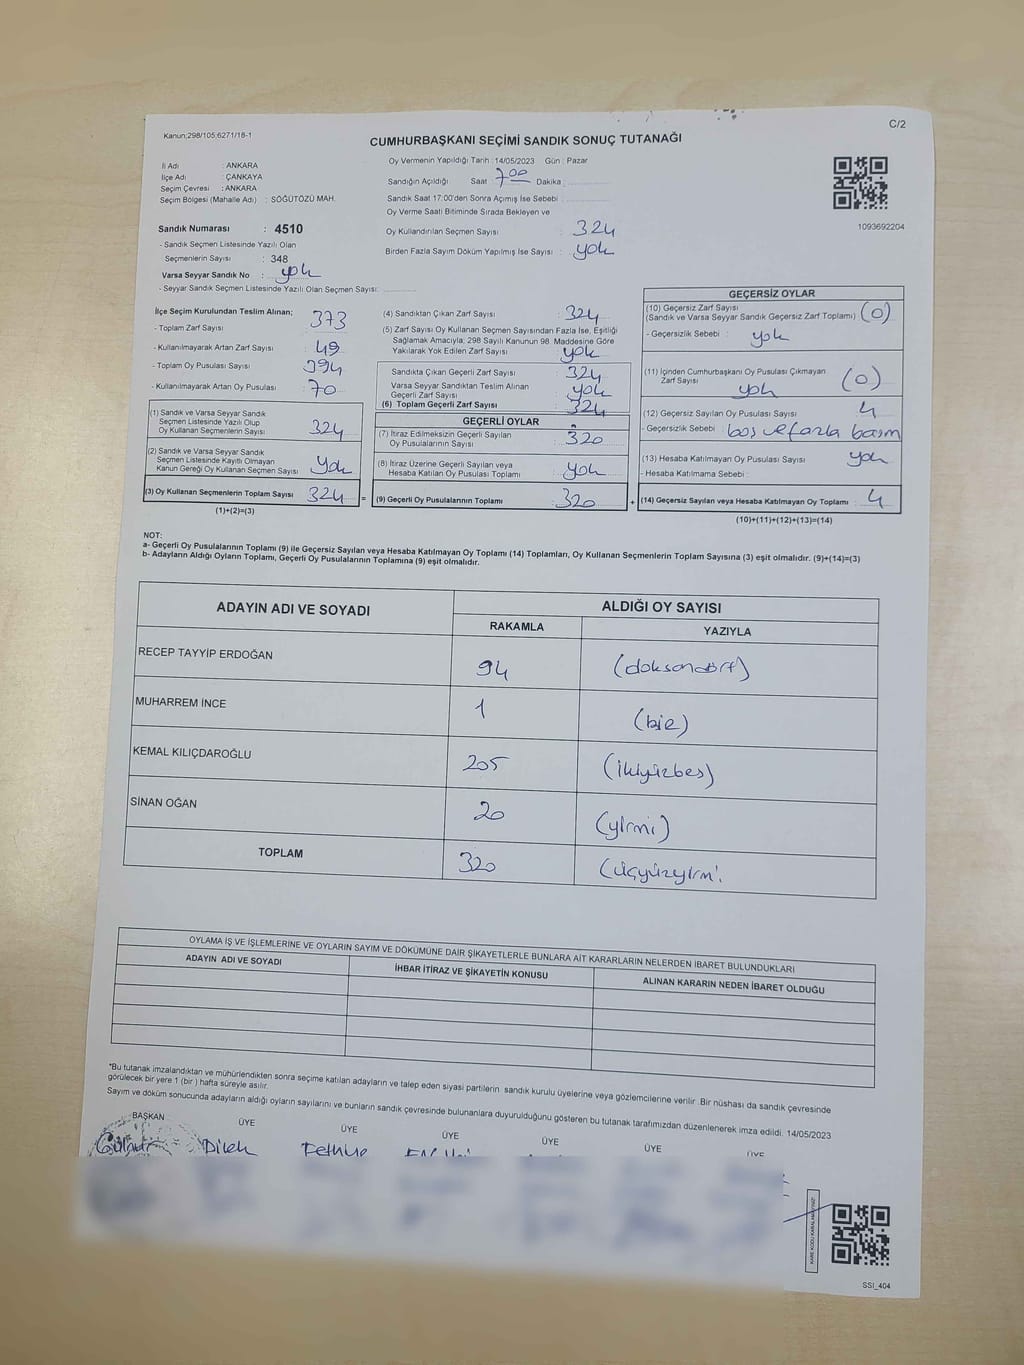 Kanun;298/105,6271/18-1
C/2
CUMHURBAŞKANI SEÇİMİ SANDIK SONUÇ TUTANAĞI
İl Adı : ANKARA
İlçe Adı : ÇANKAYA
Seçim Çevresi : ANKARA
Seçim Bölgesi (Mahalle Adı) : SÖĞÜTÖZÜ MAH.
Sandık Numarası : 4510
- Sandık Seçmen Listesinde Yazılı Olan
Seçmenlerin Sayısı : 348
Varsa Seyyar Sandık No : yok
- Seyyar Sandık Seçmen Listesinde Yazılı Olan Seçmen Sayısı:
Oy Vermenin Yapıldığı Tarih : 14/05/2023 Gün : Pazar
Sandığın Açıldığı Saat 7.00 Dakika
Sandık Saat 17:00'den Sonra Açımış İse Sebebi :
Oy Verme Saati Bitiminde Sırada Bekleyen ve
Oy Kullandırılan Seçmen Sayısı : 324
Birden Fazla Sayım Döküm Yapılmış İse Sayısı : yok
1093692204
İlçe Seçim Kurulundan Teslim Alınan;
- Toplam Zarf Sayısı : 373
- Kullanılmayarak Artan Zarf Sayısı : 49
- Toplam Oy Pusulası Sayısı : 394
- Kullanılmayarak Artan Oy Pusulası : 70
(1) Sandık ve Varsa Seyyar Sandık
Seçmen Listesinde Yazılı Olup
Oy Kullanan Seçmenlerin Sayısı : 324
(2) Sandık ve Varsa Seyyar Sandık
Seçmen Listesinde Kayıtlı Olmayan
Kanun Gereği Oy Kullanan Seçmen Sayısı : yok
(3) Oy Kullanan Seçmenlerin Toplam Sayısı : 324
(1)+(2)=(3)
(4) Sandıktan Çıkan Zarf Sayısı : 324
(5) Zarf Sayısı Oy Kullanan Seçmen Sayısından Fazla İse, Eşitliği
Sağlamak Amacıyla; 298 Sayılı Kanunun 98. Maddesine Göre
Yakılarak Yok Edilen Zarf Sayısı : yok
Sandıkta Çıkan Geçerli Zarf Sayısı : 324
Varsa Seyyar Sandıktan Teslim Alınan
Geçerli Zarf Sayısı : yok
(6) Toplam Geçerli Zarf Sayısı : 324
GEÇERLİ OYLAR
(7) İtiraz Edilmeksizin Geçerli Sayılan
Oy Pusulalarının Sayısı : 320
(8) İtiraz Üzerine Geçerli Sayılan veya
Hesaba Katılan Oy Pusulası Toplamı : yok
= (9) Geçerli Oy Pusulalarının Toplamı : 320
GEÇERSİZ OYLAR
(10) Geçersiz Zarf Sayısı
(Sandık ve Varsa Seyyar Sandık Geçersiz Zarf Toplamı) : (0)
- Geçersizlik Sebebi : yok
(11) İçinden Cumhurbaşkanı Oy Pusulası Çıkmayan
Zarf Sayısı : yok (0)
(12) Geçersiz Sayılan Oy Pusulası Sayısı : 4
- Geçersizlik Sebebi : boş ve fazla basım
(13) Hesaba Katılmayan Oy Pusulası Sayısı : yok
- Hesaba Katılmama Sebebi :
+ (14) Geçersiz Sayılan veya Hesaba Katılmayan Oy Toplamı : 4
(10)+(11)+(12)+(13)=(14)
NOT:
a- Geçerli Oy Pusulalarının Toplamı (9) ile Geçersiz Sayılan veya Hesaba Katılmayan Oy Toplamı (14) Toplamları, Oy Kullanan Seçmenlerin Toplam Sayısına (3) eşit olmalıdır. (9)+(14)=(3)
b- Adayların Aldığı Oyların Toplamı, Geçerli Oy Pusulalarının Toplamına (9) eşit olmalıdır.
ADAYIN ADI VE SOYADI
ALDIĞI OY SAYISI
RAKAMLA YAZIYLA
RECEP TAYYİP ERDOĞAN 94 (doksandört)
MUHARREM İNCE 1 (bir)
KEMAL KILIÇDAROĞLU 205 (ikiyüzbeş)
SİNAN OĞAN 20 (yirmi)
TOPLAM 320 (üçyüzyirmi
OYLAMA İŞ VE İŞLEMLERİNE VE OYLARIN SAYIM VE DÖKÜMÜNE DAİR ŞİKAYETLERLE BUNLARA AİT KARARLARIN NELERDEN İBARET BULUNDUKLARI
ADAYIN ADI VE SOYADI İHBAR İTİRAZ VE ŞİKAYETİN KONUSU ALINAN KARARIN NEDEN İBARET OLDUĞU
*Bu tutanak imzalandıktan ve mühürlendikten sonra seçime katılan adayların ve talep eden siyasi partilerin sandık kurulu üyelerine veya gözlemcilerine verilir .Bir nüshası da sandık çevresinde
görülecek bir yere 1 (bir ) hafta süreyle asılır.
Sayım ve döküm sonucunda adayların aldığı oyların sayılarını ve bunların sandık çevresinde bulunanlara duyurulduğunu gösteren bu tutanak tarafımızdan düzenlenerek imza edildi. 14/05/2023
BAŞKAN ÜYE ÜYE ÜYE ÜYE ÜYE ÜYE
Gülnur Dilek Fethiye
SSI_404